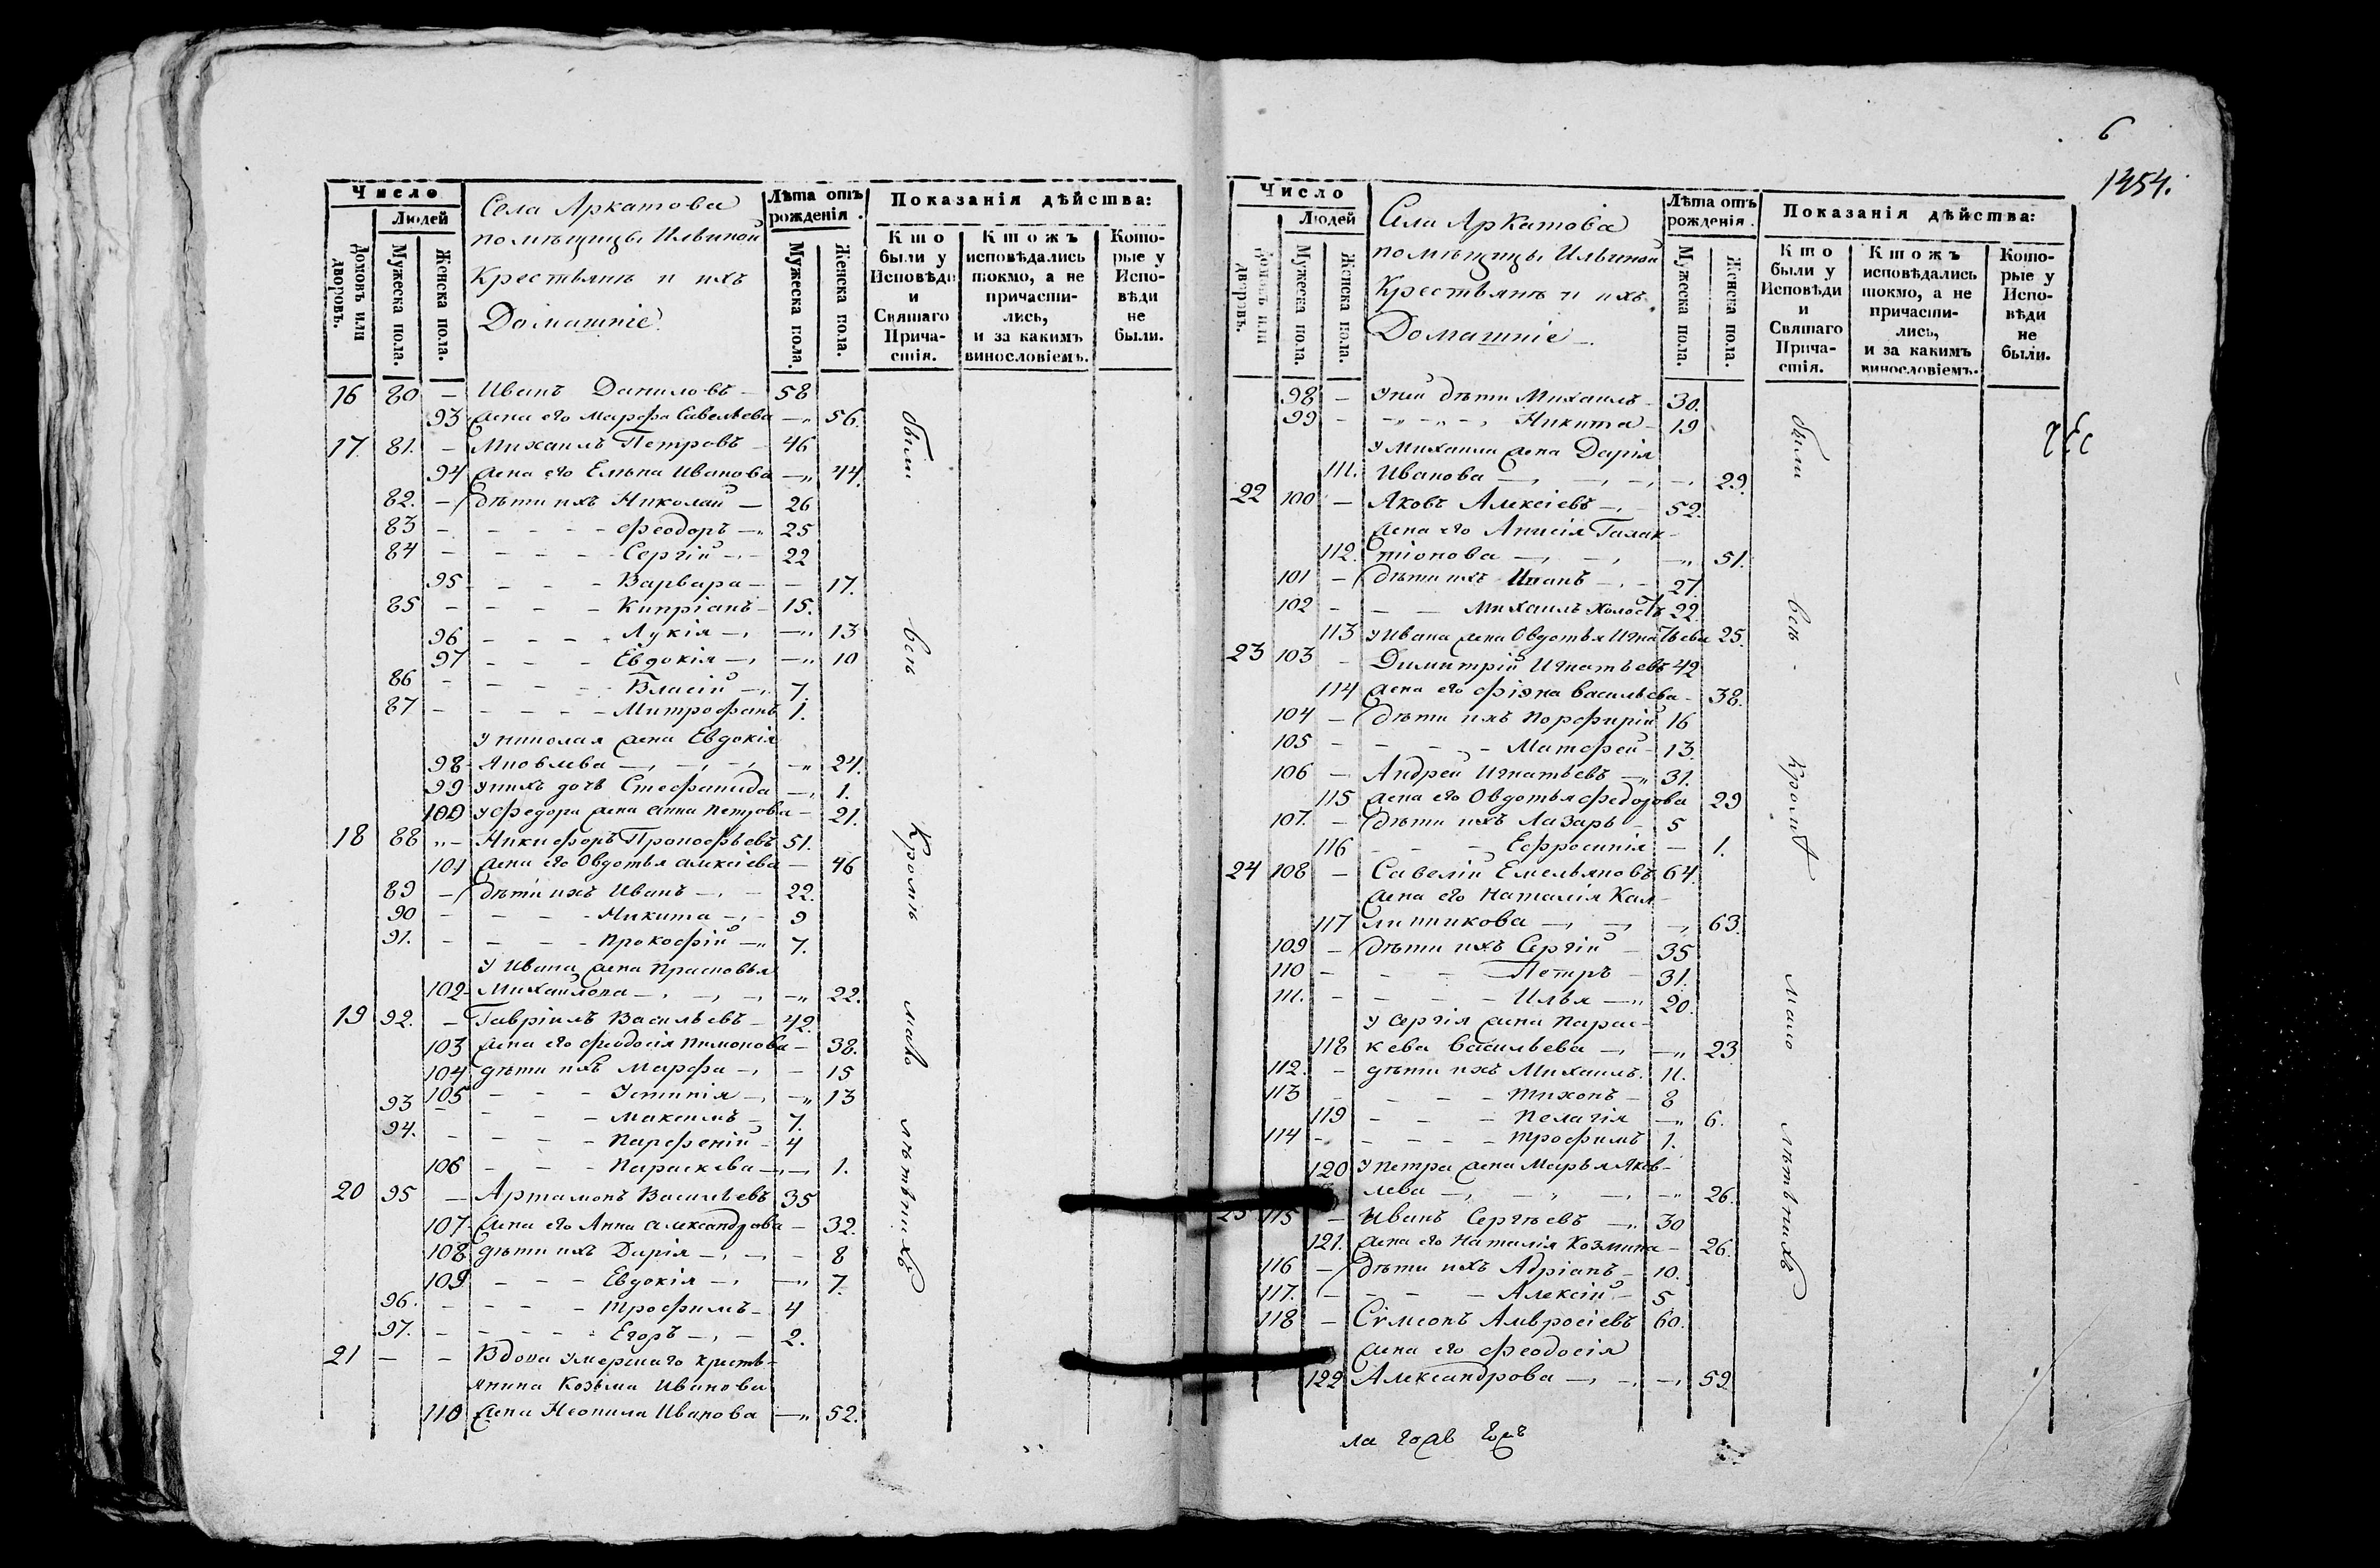 Число
Людей
Домовъ или дворовъ.
Мужеска пола.
Женска пола.
Села Аркатова
помѣщицы Ильиной
Крестьянъ и ихъ
Домашніе
Лѣта отъ рожденія.
Мужеска пола.
Женска пола.
Показанія дѣйства:
Кто были у Исповѣди и Святаго Причастія.
Ктожъ исповѣдались токмо, а не причастились, и за какимъ винословіемъ.
Которые у Исповѣди не были.
16 80 — Иванъ Даниловъ — 58
93 жена его Марфа Савельева — 56.
17. 81. — Михаилъ Петровъ — 46
94 жена его Елѣна Иванова — 44.
82. — дѣти ихъ Николай — 26
83 — — — Феодоръ — 25
84 — — — Сергій — 22
95 — — — Варвара — 17.
85 — — — Кипріанъ — 15.
96 — — — Лукія — 13
97 — — — Евдокія — 10
86 — — — Власій — 7.
87 — — — Митрофанъ 1.
у Николая жена Евдокія
98 Яковлева — 24.
99 у нихъ дочь Стефанида — 1.
100 у Федора жена Анна Петрова — 21.
18 88 — Никифоръ Прокофьевъ 51.
101 жена его Овдотья Алексіева — 46
89 — дѣти ихъ Иванъ — 22.
90 — — — Никита — 9
91. — — — Прокофій — 7.
у Ивана жена Прасковья
102 Михайлова — 22.
19 92. — Гавріилъ Васильевъ — 42.
103 жена его Феодосія Пимонова — 38.
104 дѣти ихъ Марфа — 15
105 — — — Устинія — 13
93 — — — Максимъ — 7.
94. — — — Парфеній — 4
106 — — — Параскева — 1.
20 95 — Артамонъ Васильевъ 35
107 жена его Анна Александрова — 32.
108 дѣти ихъ Дарія — 8
109 — — — Евдокія — 7.
96. — — — Трофимъ — 4
97. — — — Егоръ — 2.
21 — — Вдова умершаго кресть-
янина Козьма Иванова
110 жена Неонила Иванова — 52.
были всѣ Кромѣ мало лѣтнихъ
6
1454.
Число
Людей
Домовъ или дворовъ.
Мужеска пола.
Женска пола.
Села Аркатова
помѣщицы Ильиной
Крестьянъ и ихъ
Домашніе —
Лѣта отъ рожденія.
Мужеска пола.
Женска пола.
Показанія дѣйства:
Кто были у Исповѣди и Святаго Причастія.
Ктожъ исповѣдались токмо, а не причастились, и за какимъ винословіемъ.
Которые у Исповѣди не были.
98 — У ней дѣти Михаилъ — 30.
99 — — — Никита — 19
у Михаила жена Дарія
111. Иванова — 29.
22 100 — Яковъ Алексіевъ — 52.
жена его Анисія Галак-
112. тіонова — 51.
101 — дѣти ихъ Иванъ — 27.
102 — — — Михаилъ холостъ 22.
113 у Ивана жена Овдотья Игнатьева 25.
23 103 — Димитрій Игнатьевъ 42
114 жена его Фіона Васильева — 38.
104 — дѣти ихъ Порфирій 16
105 — — — Матфей — 13.
106 — Андрей Игнатьевъ — 31.
115 жена его Овдотья Федорова 29
107. — дѣти ихъ Лазарь — 5
116 — — — Ефросинія — 1.
24 108 — Савелій Емельяновъ 64.
жена его Наталія Кал-
117 линникова — 63.
109 — дѣти ихъ Сергій — 35
110 — — — Петръ — 31.
111. — — — Илья — 20.
у Сергія жена Парас-
118 кева Васильева — 23
112. — дѣти ихъ Михаилъ. 11.
113 — — — Тихонъ — 8
119 — — — Пелагія — 6.
114 — — — Трофимъ 1.
120 у Петра жена Марья Яков-
лева — 26.
25 115 — Иванъ Сергѣевъ — 30
121. жена его Наталія Козмина — 26.
116 — дѣти ихъ Адріанъ — 10.
117. — — — Алексій — 5
118 — Сѵмеонъ Амвросіевъ 60.
жена его Феодосія
122 Александрова — 59
были всѣ Кромѣ мало лѣтнихъ